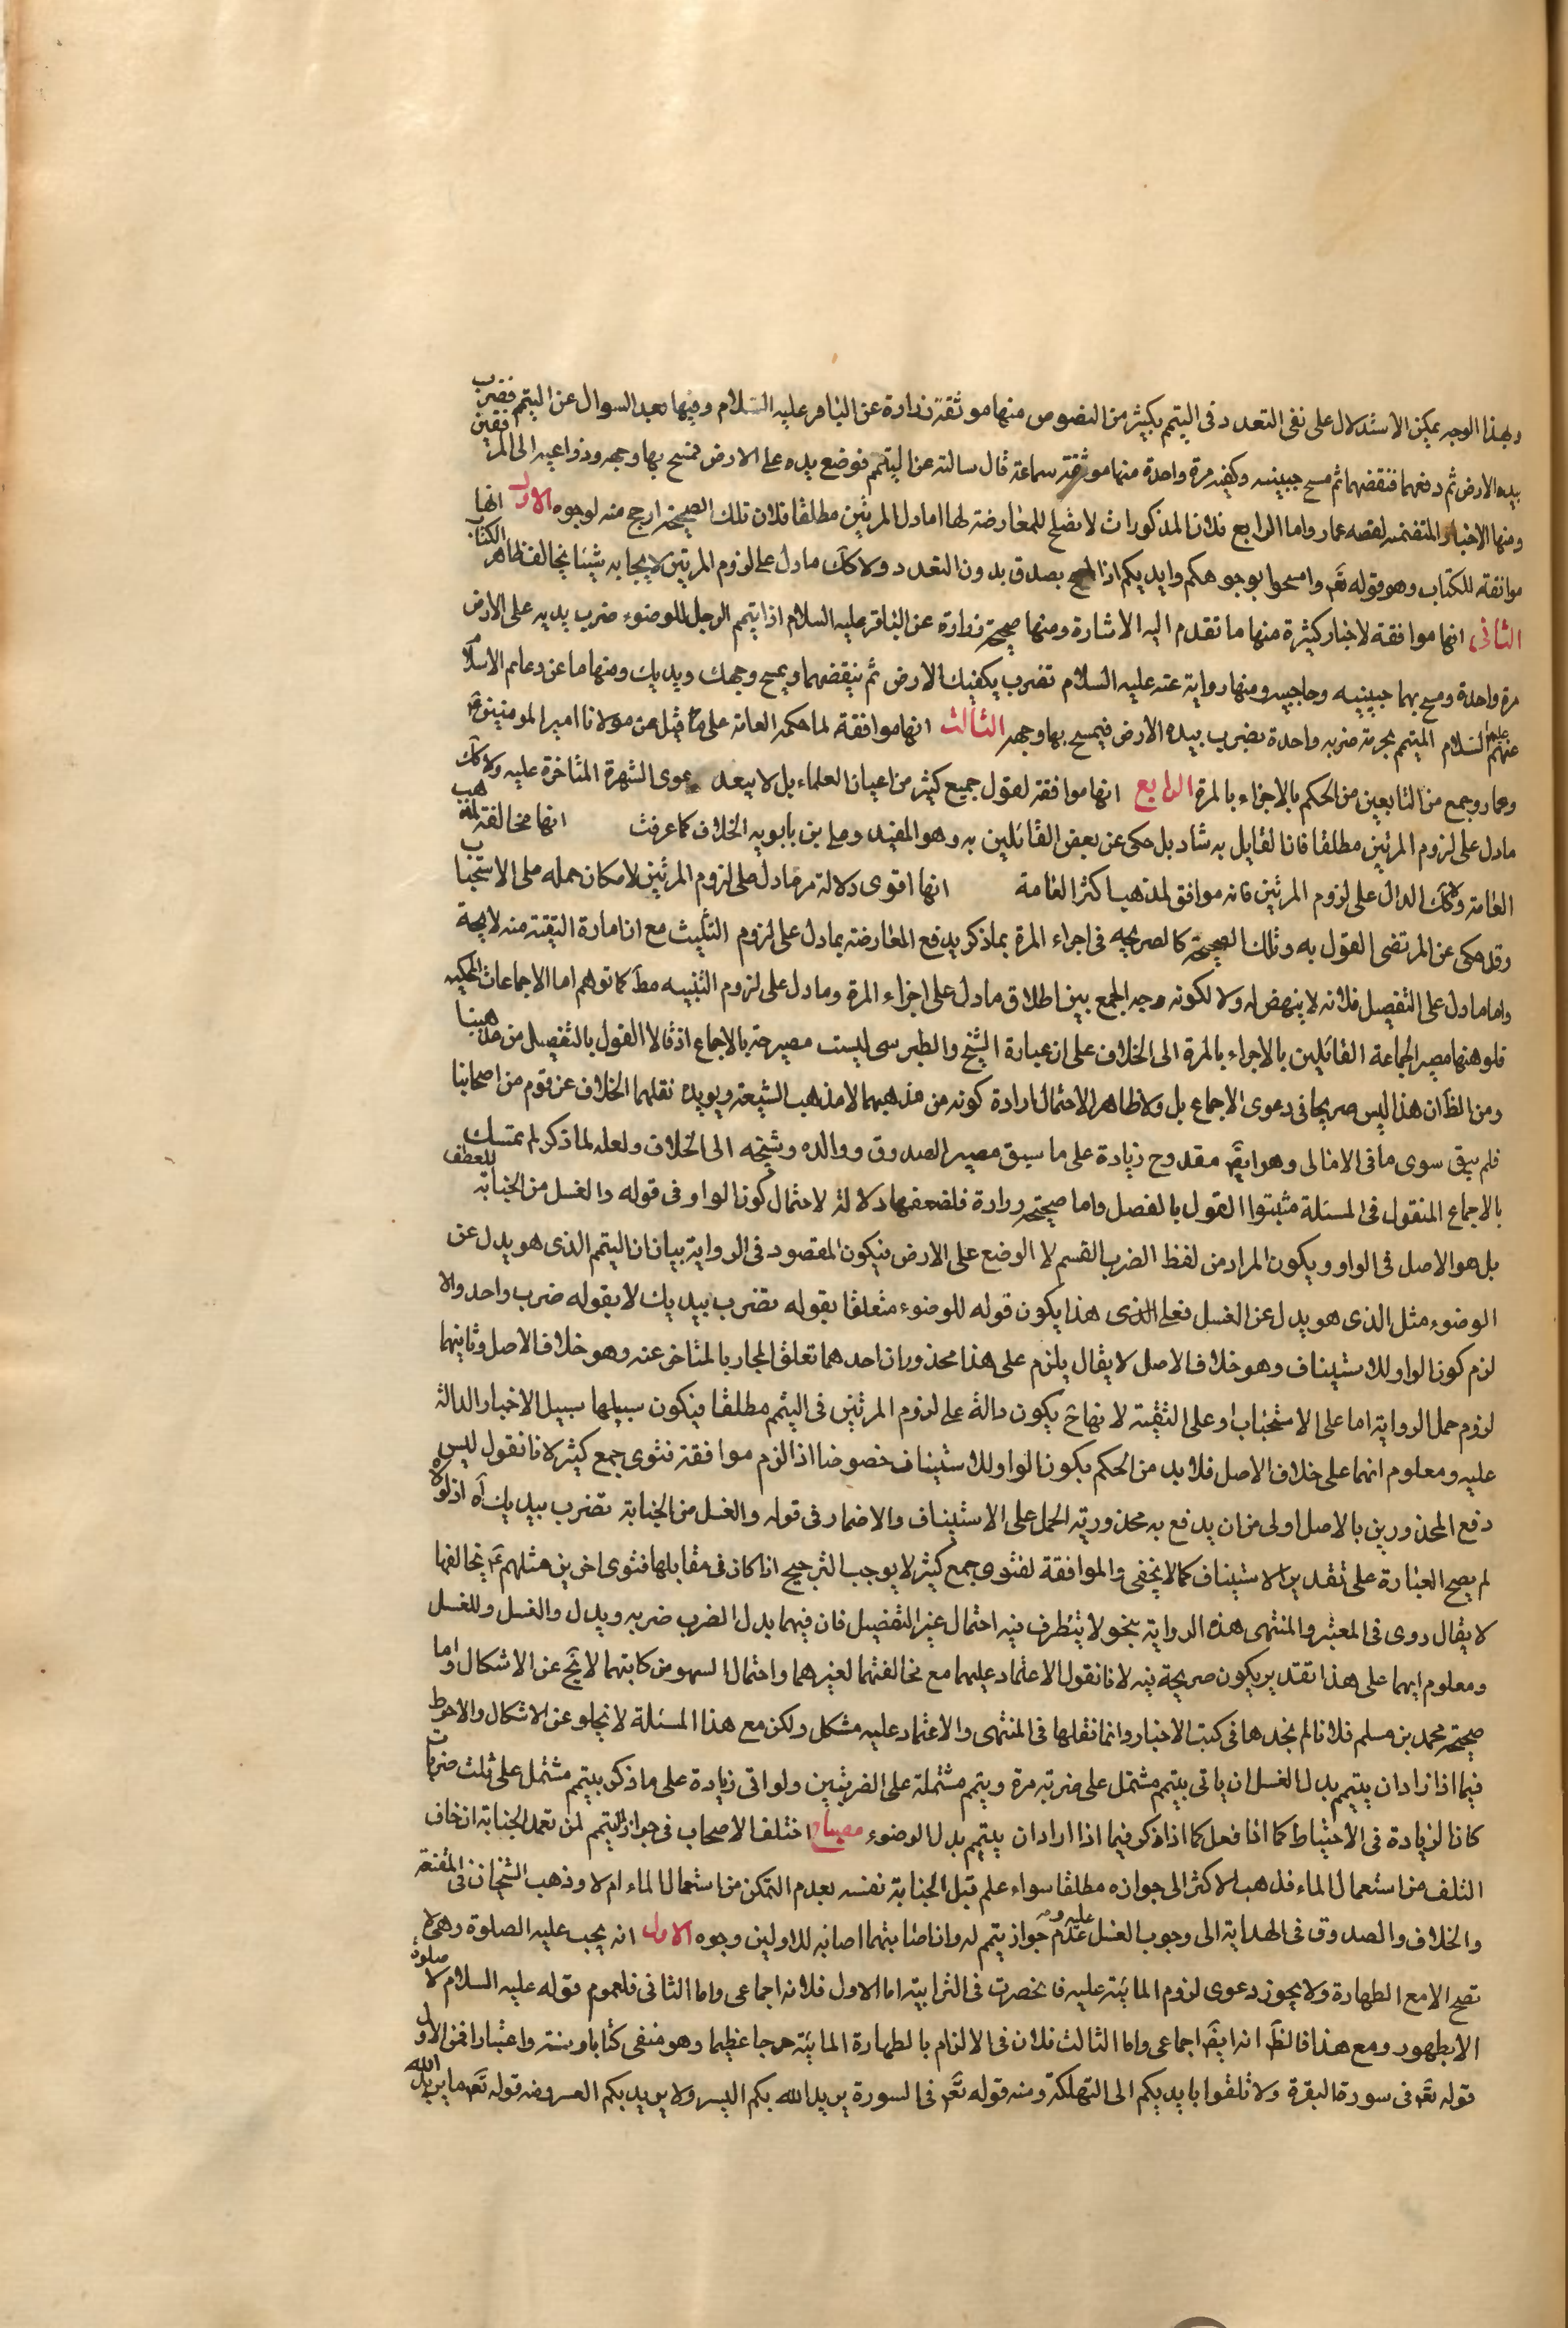 وبهذا الوجه يمكن الاستدلال على نفى التعدد فى التيمم بكثير من النصوص منها موثقة زرارة عن الباقر عليه السلام وفيها بعد السوال عن التيمم فضرب
بيده الارض ثم رفعهما فنفضهما ثم مسح جبينه وكفيه مرة واحدة منها موثقة سماعة قال سالته عن التيمم فوضع يده على الارض فمسح بها وجهه وذراعيه الى المرفقين
ومنها الاخبار المتضمنه لقصه عمار واما الرابع فلان المذكورات لا تصلح للمعارضة لها اما دل المرتين مطلقا فلان تلك الصحيحة ارجح منه لوجوه الاول انها
موافقة للكتاب وهو قوله تعم وامسحوا بوجوهكم وايديكم اذ المسح يصدق بدون التعدد ولا كك مادل على لزوم المرتين لايجابه شيئا يخالف ظاهر الكتاب
الثانى انها موافقة لاخبار كثيرة منها ما تقدم اليه الاشارة ومنها صحيحة زرارة عن الباقر عليه السلام اذا تيمم الرجل للوضوء ضرب يديه على الارض
مرة واحدة ومسح بهما جبينيه وحاجبيه ومنها رواية عنه عليه السلام تضرب بكفيك الارض ثم ينفضهما ويمسح وجهك ويديك ومنها ما عن دعايم الاسلام
عنهم عليهم السلام المتيمم يجزيه ضربه واحدة يضرب بيده الارض فيمسح بها وجهه الثالث انها موافقة لما حكمه العامة على ما قيل عن مولانا امير المومنين
وعمار وجمع من التابعين من الحكم بالاجزاء بالمرة الرابع انها موافقة لقول جميع كثير من اعيان العلماء بل لا يبعد دعوى الشهرة المتاخرة عليه ولا كك
مادل على لزوم المرتين مطلقا فان القايل به شاد بل حكى عن بعض القائلين به وهو المفيد وعلى بن بابويه الخلاف كما عرفت انها مخالفة لمذهب
العامة ولا كك الدال على لزوم المرتين فانه موافق لمذهب اكثر العامة انها اقوى دلالة مما دل على لزوم المرتين لامكان حمله على الاستحباب
وقد حكى عن المرتضى القول به وتلك الصحيحة كالصريحه فى اجزاء المرة بما ذكر يدفع المعارضة بما دل على لزوم التثليث مع ان امارة التقية منه لايحة
واما مادل على التفصيل فلانه لا ينهض له ولا لكونه وجه الجمع بين اطلاق مادل على اجزاء المرة ومادل على لزوم التثنيه مط كما توهم اما الاجماعات المحكيه
فلوهنها مصير الجماعة القائلين بالاجزاء بالمرة الى الخلاف على ان عبارة الشيخ والطبرسى ليست مصرحة بالاجماع اذ قالا القول بالتفصيل من مذهبنا
ومن الظ ان هذا ليس صريحا فى دعوى الاجماع بل ولا ظاهرا لاحتمال ارادة كونه من مذهبهما لا مذهب الشيعة ويويده نقلهما الخلاف عن قوم من اصحابنا
فلم يبق سوى ما فى الامالى وهو ايضا مقدوح زيادة على ما سبق مصير الصدوق ووالده وشيخه الى الخلاف ولعله لما ذكر لم يتمسك
بالاجماع المنقول فى المسئلة مثبتوا القول بالفصل واما صحيحة زرارة فلضعفها دلالة لاحتمال كون الواو فى قوله والغسل من الجنابة للعطف
بل هو الاصل فى الواو ويكون المراد من لفظ الضرب القسم لا الوضع على الارض فيكون المقصود فى الرواية بيان ان التيمم الذى هو بدل عن
الوضوء مثل الذى هو بدل عن الغسل فعلى الذى هذا يكون قوله للوضوء متعلقا بقوله تضرب بيديك لا بقوله ضرب واحد والا
لزم كون الواو للاستيناف وهو خلاف الاصل لا يقال يلزم على هذا محذوران احدهما تعلق الجار بالمتاخر عنه وهو خلاف الاصل وثانيهما
لزوم حمل الرواية اما على الاستحباب او على التقية لانها ح يكون دالة على لزوم المرتين فى التيمم مطلقا فيكون سبيلها سبيل الاخبار الدالة
عليه ومعلوم انهما على خلاف الاصل فلا بد من الحكم بكون الواو للاستيناف خصوصا اذا لزم موافقة فتوى جمع كثير لانا نقول ليس
دفع المحذورين بالاصل اولى من ان يدفع به محذورية الحمل على الاستيناف والاضمار فى قوله والغسل من الجنابة تضرب بيديك اه اذ لولاه
لم يصح العبارة على تقدير الاستيناف كما لا يخفى والموافقة لفتوى جمع كثير لا يوجب الترجيح اذا كان فى مقابلها فتوى اخرين مثلهم يخالفها
لا يقال روى فى المعتبر والمنتهى هذه الرواية بنحو لا يتطرف فيه احتمال غير التفصيل فان فيهما بدل الضرب ضربه وبدل والغسل وللغسل
ومعلوم انهما على هذا تقدير يكون صريحة فيه لانا نقول الاعتماد عليهما مع مخالفتهما لغيرهما واحتمال السهو من كاتبهما لا يخ عن الاشكال واما
صحيحة محمد بن مسلم فلانا لم نجدها فى كتب الاخبار وانما نقلها فى المنتهى والاعتماد عليه مشكل ولكن مع هذا المسئلة لا تخلو عن الاشكال والاحوط
فيما اذا اراد ان يتيمم بدل الغسل ان ياتى بتيمم مشتمل على ضربة مرة وبتيمم مشتملة على الضربتين ولو اتى زيادة على ما ذكر بتيمم مشتمل على ثلث ضربات
كان الزيادة فى الاحتياط كما اذا فعل كما اذا ذكر فيما اذا اراد ان يتيمم بدل الوضوء مصباح اختلف الاصحاب فى جواز التيمم لمن تعمد الجنابة ان خاف
التلف من استعمال الماء فذهب الاكثر الى جوازه مطلقا سواء علم قبل الجنابة نفسه بعدم التمكن من استعمال الماء ام لا وذهب الشيخان فى المقنعة
والخلاف والصدوق فى الهداية الى وجوب الغسل عليه وعدم جواز تيمم له وان اصابه للاولين وجوه الاول انه يجب عليه الصلوة وهى لا
تصح الا مع الطهارة ولا يجوز دعوى لزوم المائية عليه فانحصرت فى الترابية اما الاول فلانه اجماعى واما الثانى فلعموم قوله عليه السلام لا صلوة
الا بطهور ومع هذا فالظ انه ايضا اجماعى واما الثالث فلان فى الالزام بالطهارة المائية حرجا عظيما وهو منفى كتابا وسنة واعتبارا فمن الاول
قوله تعم فى سورة البقرة ولا تلقوا بايديكم الى التهلكة ومنه قوله تعم فى السورة يريد الله بكم اليسر ولا يريد بكم العسر ومنه قوله تعم ما يريد الله